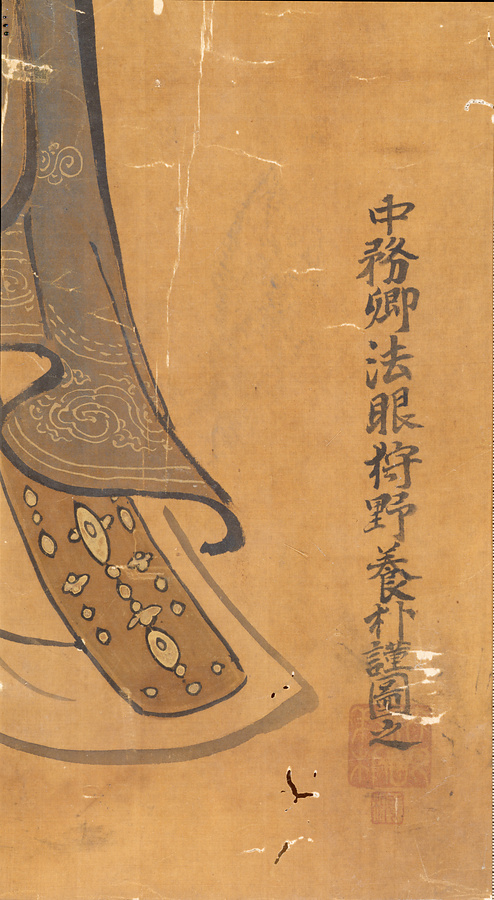 中務卿法眼狩野養朴謹圖之